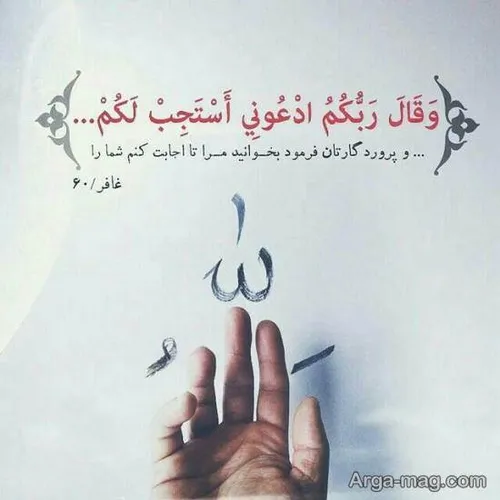 وَقَالَ رَبُّكُمُ ادْعُونِي أَسْتَجِبْ لَكُمْ...
... و پروردگارتان فرمود بخوانید مرا تا اجابت کنم شما را
غافر/۶۰
Arga-mag.com